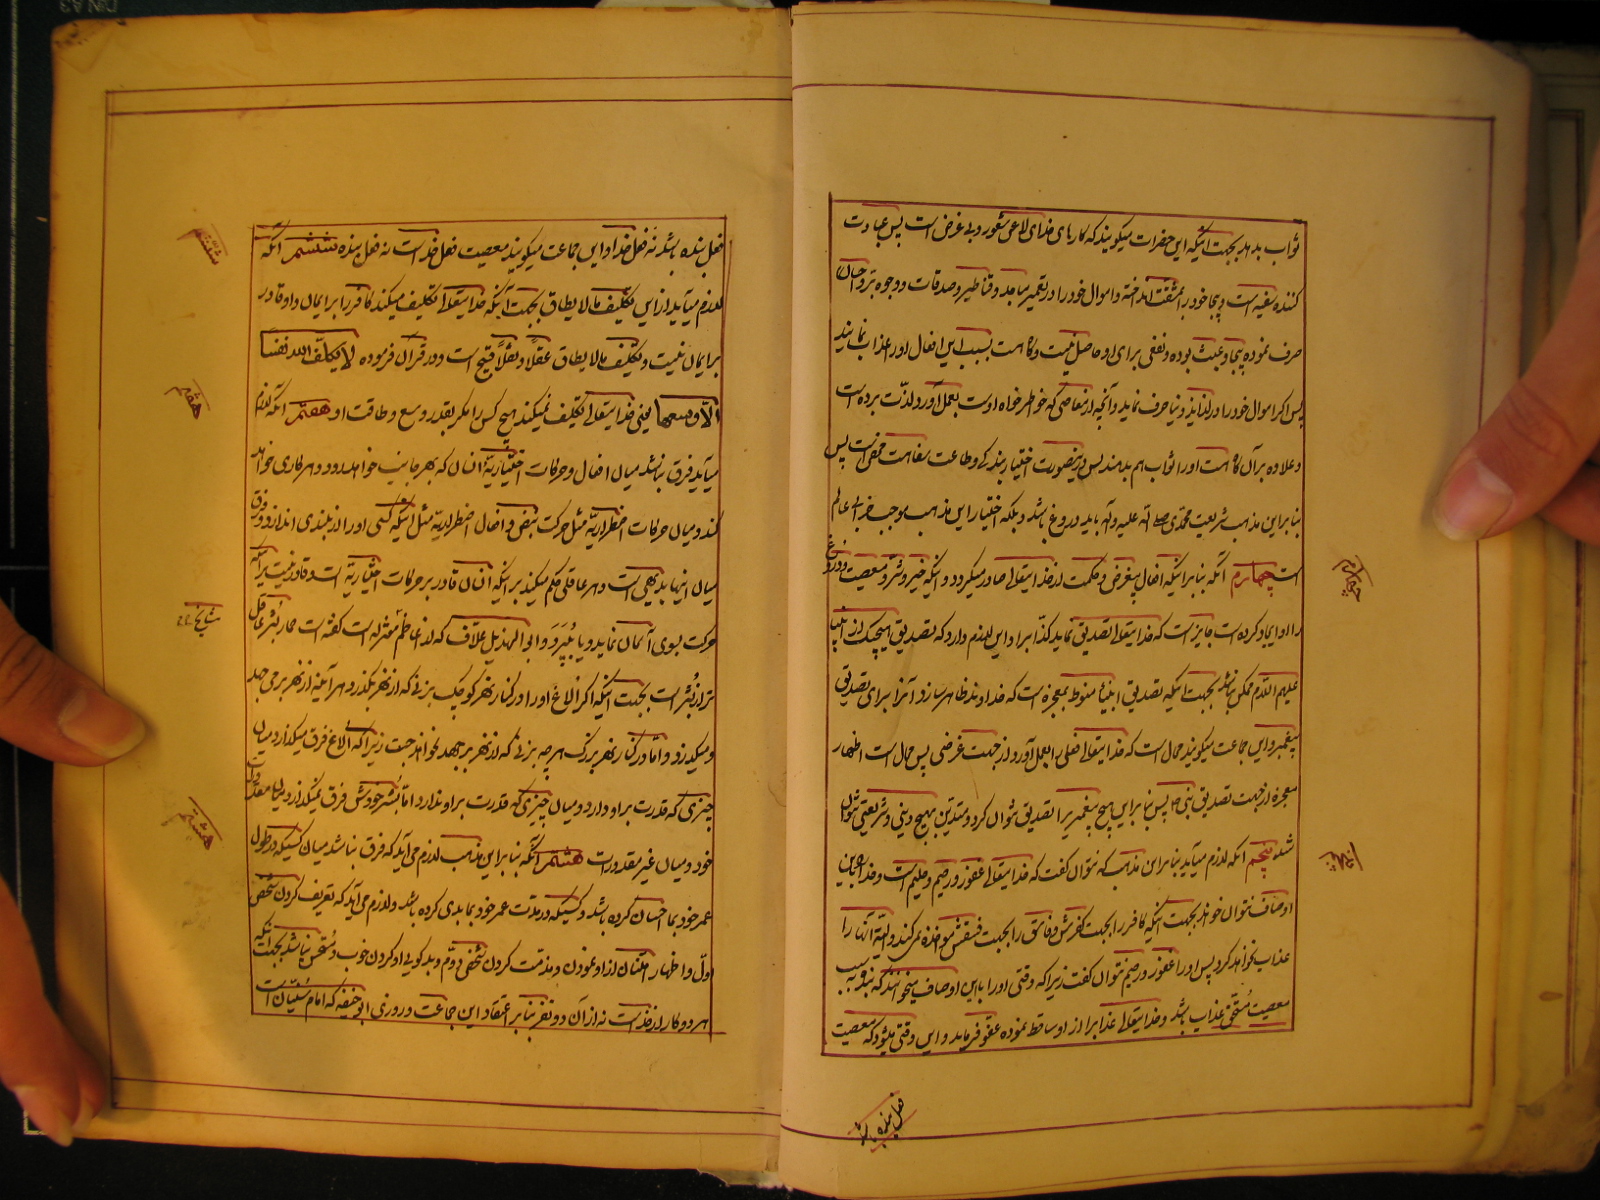 ثواب بدهد بجهت اینکه این حضرات میگویند که کارهای خدای لاعن شعور و بی غرض است پس عبادت
کننده سفیه است و بیجا خود را بمشقت انداخته و اموال خود را در تعمیر مساجد و قناطیر و صدقات و وجوه بر
صرف نموده بیجا و عبث بوده و نفعی برای او حاصل نیست و گاه است بسبب این افعال او را عذاب نمایند
پس اگر اموال خود را در لذایذ دنیا صرف نماید و آنچه از معاصی که خواطر خواه اوست بعمل آورد لذت برده است
و علاوه بر آن گاه است او را ثواب هم بدهند پس درینصورت اختیار بندگی و طاعت سفاهت محض است پس
بنابراین مذهب شریعت محمدی صلی الله علیه و آله باید دروغ باشد و بلکه اختیار این مذهب موجب خرابی عالم
است چهارم آنکه بنابر اینکه افعال بیغرض و حکمت از خدایتعالی صادر میگردد و اینکه خیر و شر و معصیت و دروغ
را او ایجاد کرده است جایز است که خدایتعالی تصدیق نماید کذابرا و این لازم دارد که تصدیق هیچیک از انبیا
علیهم السلام ممکن نباشد بجهت اینکه تصدیق انبیا منوط بمعجزه است که خداوند ظاهر سازد آنرا برای تصدیق
پیغمبر و این جماعت میگویند محال است که خدایتعالی فعلی را بعمل آورد از جهت غرضی پس محال است اظهار
معجزه از جهت تصدیق نبی پس بنابراین هیچ پیغمبر را تصدیق نتوان کرد و متدین بهیچ دینی و شریعتی نتوان
شد پنجم آنکه لازم میآید بنابراین مذهب که نتوان گفت که خدایتعالی غفور و رحیم و حلیم است و خدا را باین
اوصاف نتوان خواند بجهت اینکه کافر را بجهت کفرش و فاسق را بجهت فسقش مواخذه نمیکند و البته آنها را
عذاب نخواهد کرد پس او را غفور و رحیم نتوان گفت زیرا که وقتی او را باین اوصاف میخوانند که بنده بسبب
معصیت مستحق عذاب باشد و خدایتعالی عذاب را از او ساقط نموده عفو فرماید و این وقتی میشود که معصیت
فعل بنده باشد
چهارم
پنجم
فعل بنده باشد نه فعل خدا و این جماعت میگویند معصیت فعل خداست نه فعل بنده ششم آنکه
لازم میآید از این تکلیف مالایطاق بجهت آنکه خدایتعالی تکلیف میکند کافر را بر ایمان و او قادر
بر ایمان نیست و تکلیف مالایطاق عقلاً و نقلاً قبیح است و در قرآن فرموده لا یکلف الله نفسا
الا وسعها یعنی خدایتعالی تکلیف نمیکند هیچ کس را مگر بقدر وسع و طاقت او هفتم آنکه لازم
میآید فرق نباشد میان افعال و حرکات اختیاریه انسان که بهر جانب خواهد رود و هر کاری خواهد
کند و میان حرکات اضطراریه مثل حرکت نبض و افعال اضطراریه مثل اینکه کسی او را از بلندی اندازد و فرق
میان اینها بدیهی است و هر عاقلی حکم میکند بر اینکه انسان قادر بر حرکات اختیاریه است و قادر نیست بر اینکه
حرکت بسوی آسمان نماید و یا بپرد و ابو الهذیل علاف که از اعاظم معتزله است گفته است حمار بشر عاقل
تر از بشر است بجهت اینکه اگر الاغ او را در کنار نهر کوچک بزنی که از نهر بگذرد هر آینه از نهر بر می جهد
و میگذرد و اما در کنار نهر بزرگ هر چه بزنی که از نهر بر جهد نخواهد جست زیرا که الاغ فرق میگذارد میان
چیزی که قدرت بر او دارد و میان چیزی که قدرت بر او ندارد اما بشر خودش فرق نمیگذارد میان مقدورات
خود و میان غیر مقدورات هشتم آنکه بنابراین مذهب لازم می آید که فرق نباشد میان کسیکه در طول
عمر خود بما احسان کرده باشد و کسیکه در مدت عمر خود بما بدی کرده باشد و لازم می آید که تعریف کردن شخص
اول و اظهار امتنان از او نمودن و مذمت کردن شخص دوم و بدگویی او کردن خوب و مستحسن نباشد بجهت اینکه
هر دو کار از خداست نه از آن دو نفر بنابر اعتقاد این جماعت و روزی ابو حنیفه که امام سنیان است
ششم
هفتم
هشتم